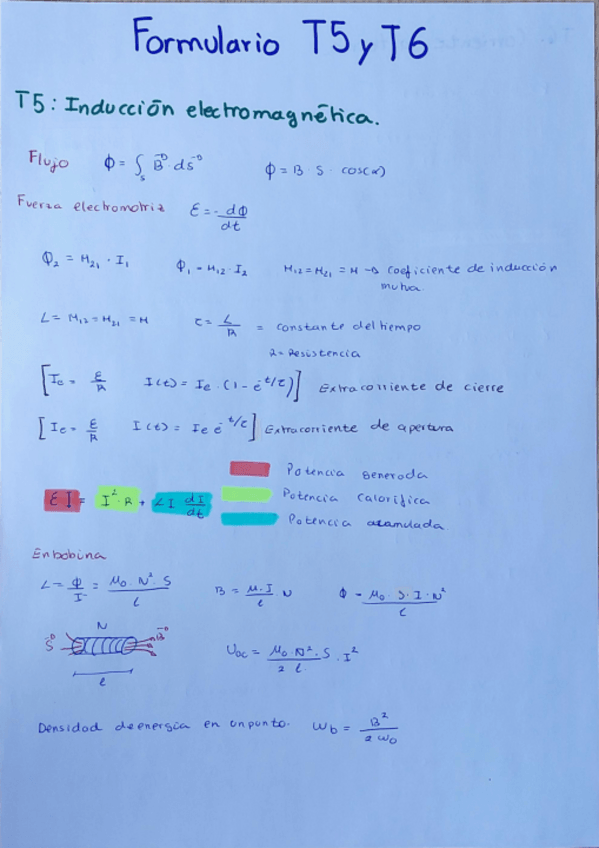 Formulario T5 y T6
T5: Inducción electromagnética.
Flujo Φ = ∫s B⃗ · ds⃗ Φ = B · S · cos(α)
Fuerza electromotriz ε = - dΦ/dt
Φ₂ = M₂₁ · I₁ Φ₁ = M₁₂ · I₂ M₁₂ = M₂₁ = M → coeficiente de inducción
mutua.
L = M₁₂ = M₂₁ = M τ = L/R = constante del tiempo
R = Resistencia
[Ie = ε/R I(t) = Ie · (1 - e^-t/τ)] Extracorriente de cierre
[Ie = ε/R I(t) = Ie e^-t/τ] Extracorriente de apertura
Potencia Generada
ε I = I² · R + L I dI/dt Potencia Calorífica
Potencia acumulada
En bobina
L = Φ/I = μ₀ · N² · S / l B = μ · I / l · N Φ = μ₀ · S · I · N² / l
N
S⃗ B⃗ Uac = μ₀ · N² · S / 2 l · I²
l
Densidad de energía en un punto. ωb = B² / 2 ω₀